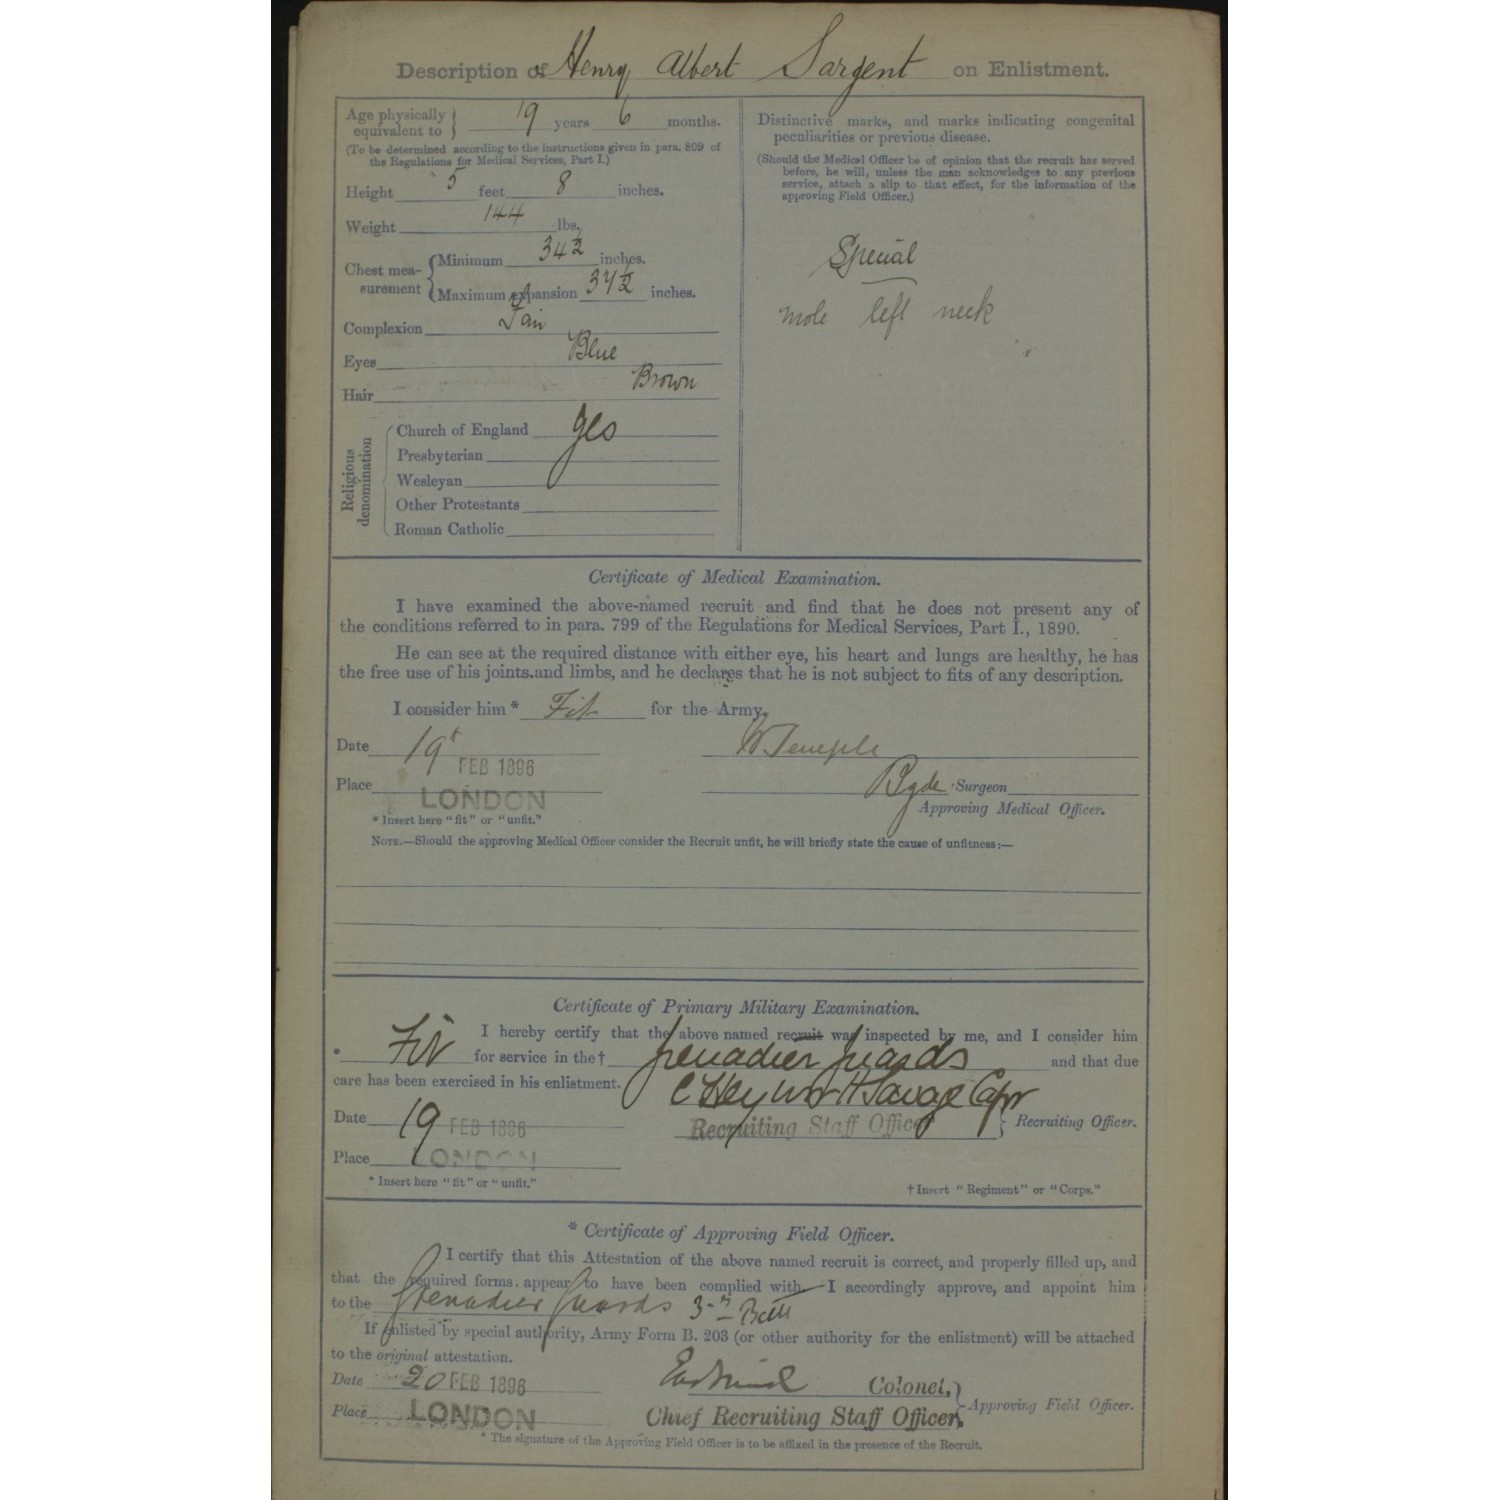 Description of Henry Albert Sargent on Enlistment.
Age physically equivalent to } 19 years 6 months.
(To be determined according to the instructions given in para. 809 of
the Regulations for Medical Services, Part I.)
Height 5 feet 8 inches.
Weight 144 lbs.
Chest mea-surement { Minimum 34½ inches.
Maximum expansion 37½ inches.
Complexion Fair
Eyes Blue
Hair Brown
Religious denomination
Church of England Yes
Presbyterian
Wesleyan
Other Protestants
Roman Catholic
Distinctive marks, and marks indicating congenital
peculiarities or previous disease.
(Should the Medical Officer be of opinion that the recruit has served
before, he will, unless the man acknowledges to any previous
service, attach a slip to that effect, for the information of the
approving Field Officer.)
Special
mole left neck
Certificate of Medical Examination.
I have examined the above-named recruit and find that he does not present any of
the conditions referred to in para. 799 of the Regulations for Medical Services, Part I., 1890.
He can see at the required distance with either eye, his heart and lungs are healthy, he has
the free use of his joints and limbs, and he declares that he is not subject to fits of any description.
I consider him * Fit for the Army.
Date 19 FEB 1896 W Temple
Place LONDON Surgeon
Approving Medical Officer.
* Insert here "fit" or "unfit."
NOTE.—Should the approving Medical Officer consider the Recruit unfit, he will briefly state the cause of unfitness:—
Certificate of Primary Military Examination.
I hereby certify that the above named recruit was inspected by me, and I consider him
* Fit for service in the † Grenadier Guards and that due
care has been exercised in his enlistment. C Heyworth Savage Capt
Date 19 FEB 1896 Recruiting Staff Officer } Recruiting Officer.
Place LONDON
* Insert here "fit" or "unfit." † Insert "Regiment" or "Corps."
* Certificate of Approving Field Officer.
I certify that this Attestation of the above named recruit is correct, and properly filled up, and
that the required forms appear to have been complied with. I accordingly approve, and appoint him
to the Grenadier Guards 3rd Batt
If enlisted by special authority, Army Form B. 203 (or other authority for the enlistment) will be attached
to the original attestation.
Date 20 FEB 1896 Colonel, } Approving Field Officer.
Place LONDON Chief Recruiting Staff Officer.
* The signature of the Approving Field Officer is to be affixed in the presence of the Recruit.